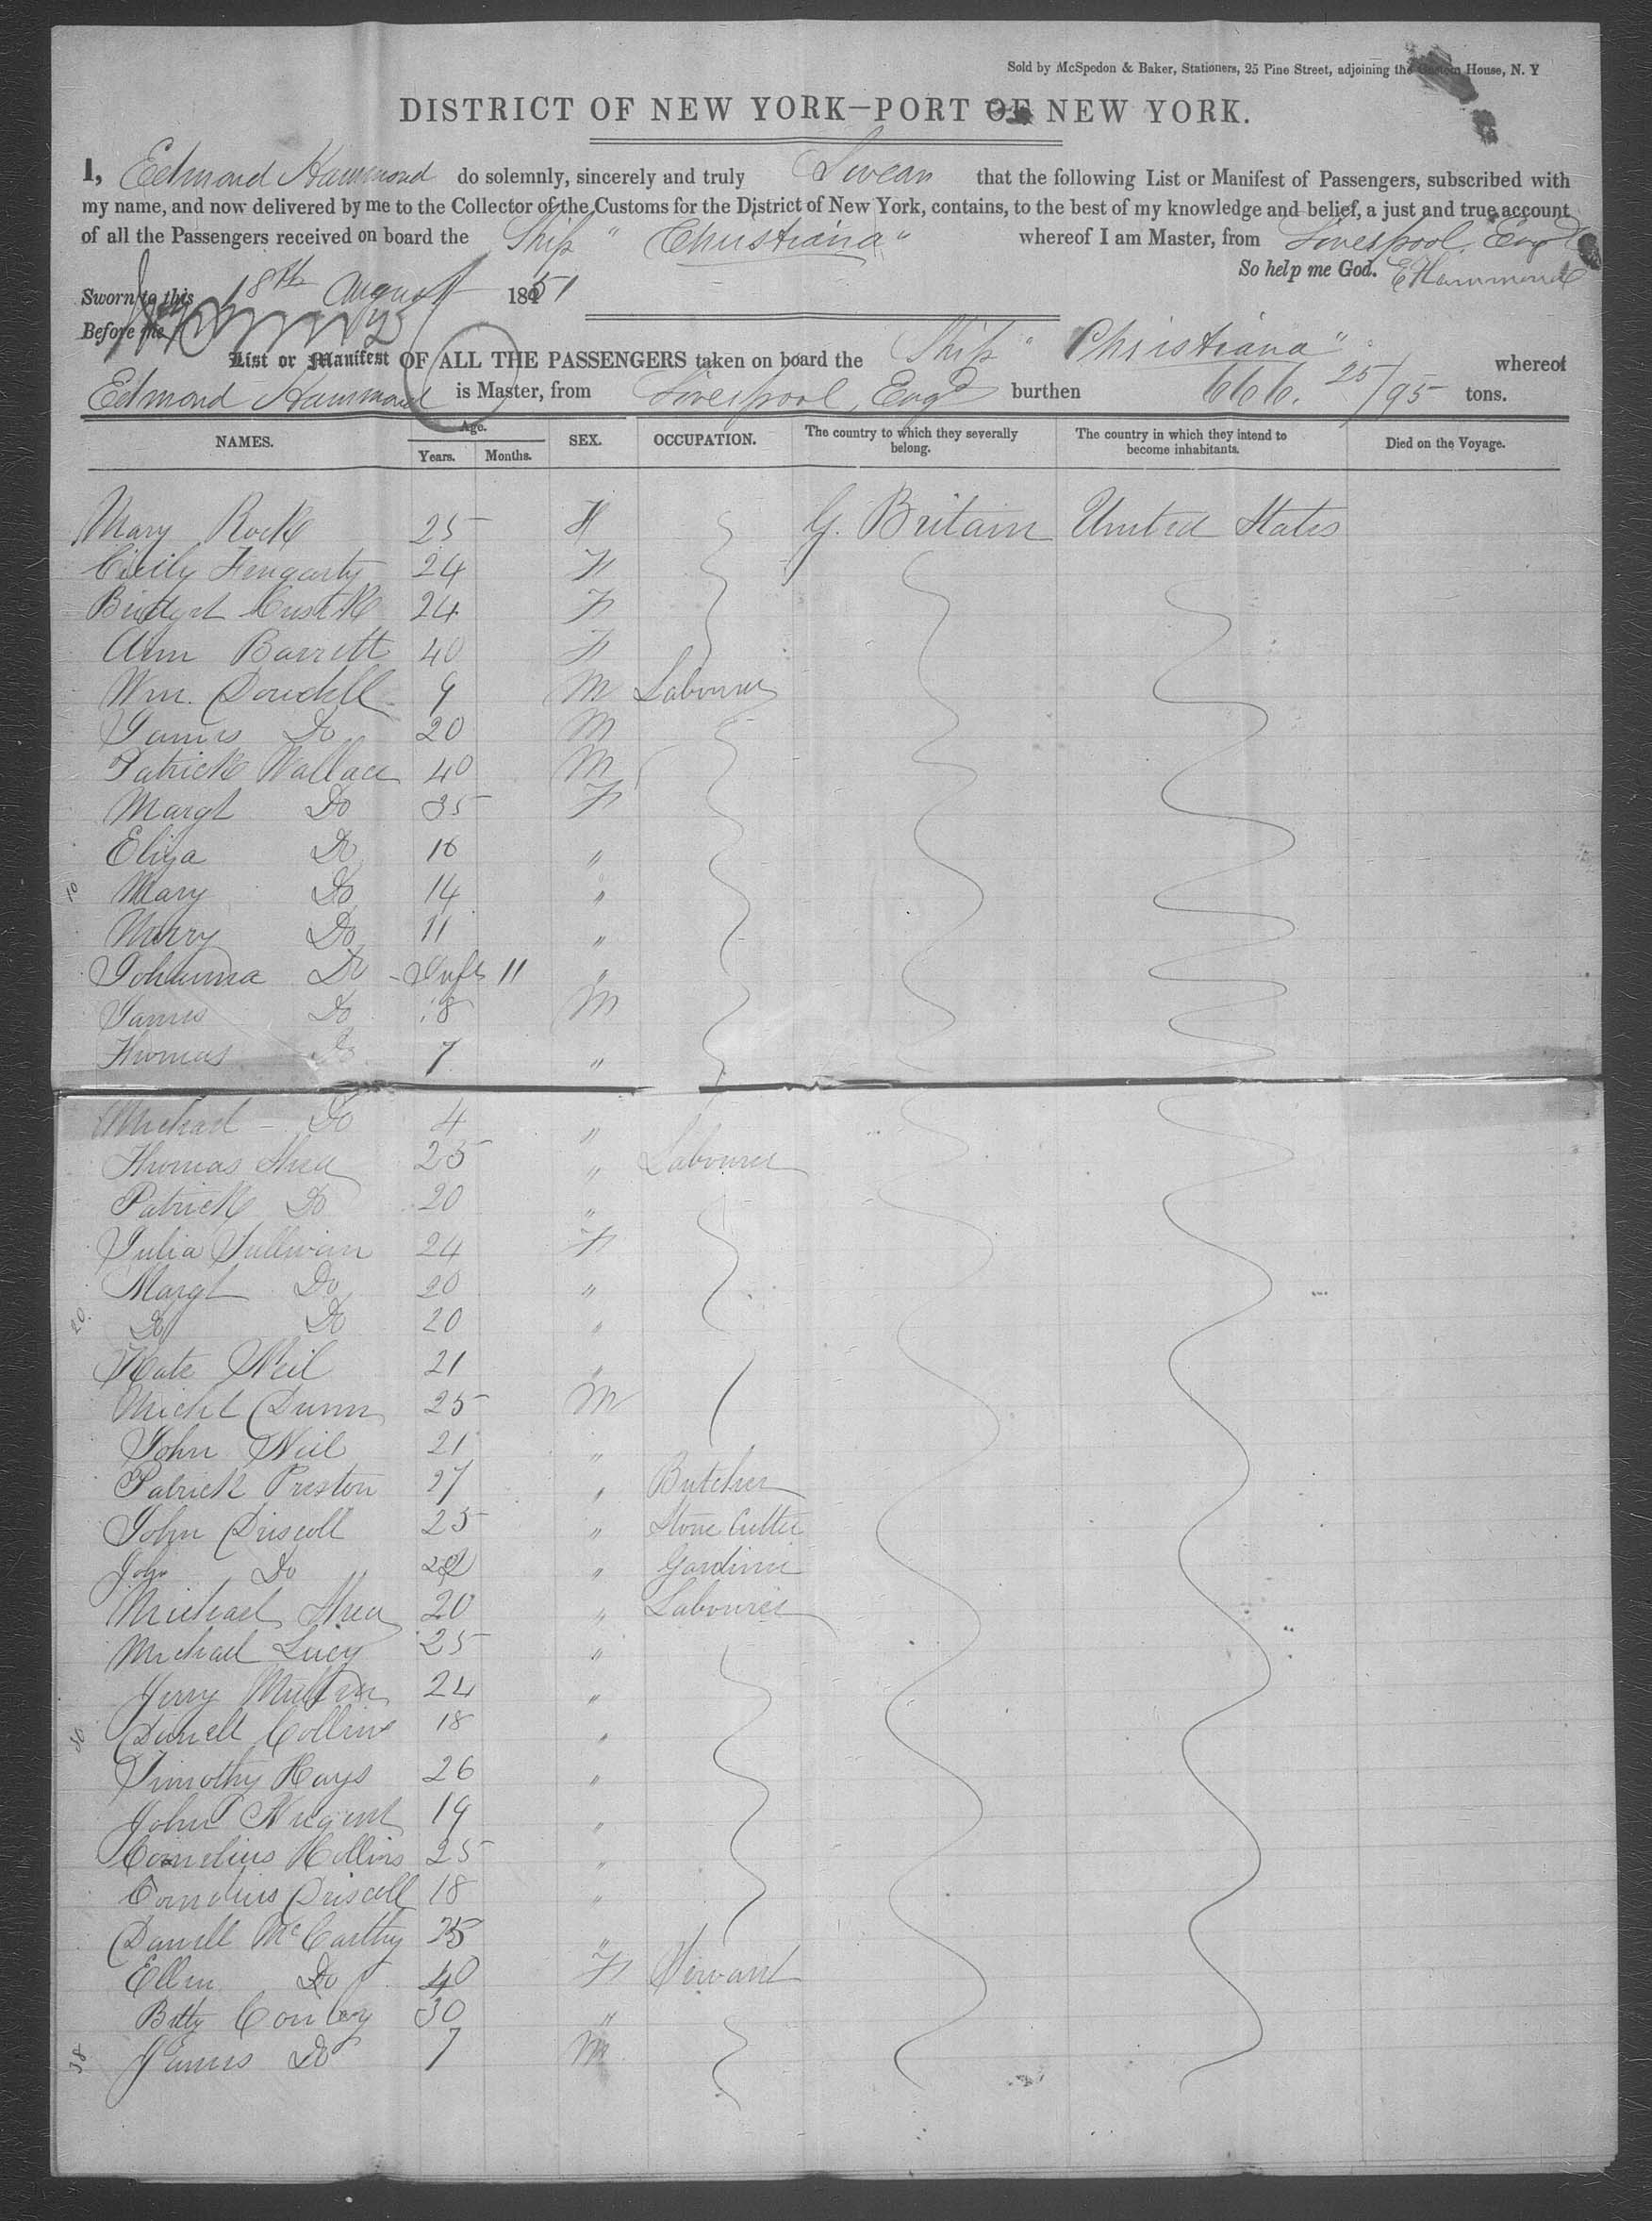 Sold by McSpedon & Baker, Stationers, 25 Pine Street, adjoining the Custom House, N. Y
DISTRICT OF NEW YORK—PORT OF NEW YORK.
I, Edmond Hammond do solemnly, sincerely and truly Swear that the following List or Manifest of Passengers, subscribed with
my name, and now delivered by me to the Collector of the Customs for the District of New York, contains, to the best of my knowledge and belief, a just and true account
of all the Passengers received on board the Ship "Christiana" whereof I am Master, from Liverpool, Engd
So help me God. E Hammond
Sworn to this 18th August 1851
Before me
List or Manifest OF ALL THE PASSENGERS taken on board the Ship "Christiana" whereof
Edmond Hammond is Master, from Liverpool, Engd burthen 666. 25/95 tons.
NAMES. Age. Years. Months. SEX. OCCUPATION. The country to which they severally belong. The country in which they intend to become inhabitants. Died on the Voyage.
Mary Rock 25 F G. Britain United States
Cicily Fengarty 24 F
Bridget 24 F
Ann Barrett 40 F
Wm. Dowdell 9 M Labourer
James Do 20 M
Patrick Wallace 40 M
Margt Do 35 F
Eliza Do 16 "
10 Mary Do 14 "
Do 11 "
Johanna Do - Inft 11 "
James Do 8 M
Thomas Do 7 "
Michael - Do 4 "
Thomas Shea 25 " Labourer
Patrick Do 20 "
Julia Sullivan 24 F
Margt Do 20 "
20. Do Do 20 "
Kate Neil 21 "
Michl Dunn 25 M
John Neil 21 "
Patrick Preston 27 " Butcher
John Driscoll 25 " Stone Cutter
John Do " Gardiner
Michael Shea 20 " Labourer
Michael Lucy 25 "
Jerry 24 "
30 Daniell Collins 18 "
Timothy Hays 26 "
John Nugent 19 "
Cornelius Collins 25 "
Cornelius Driscoll 18 "
Daniell McCarthy 25 "
Ellen Do 40 F Servant
Betty Conley 30 "
38 James Do 7 M